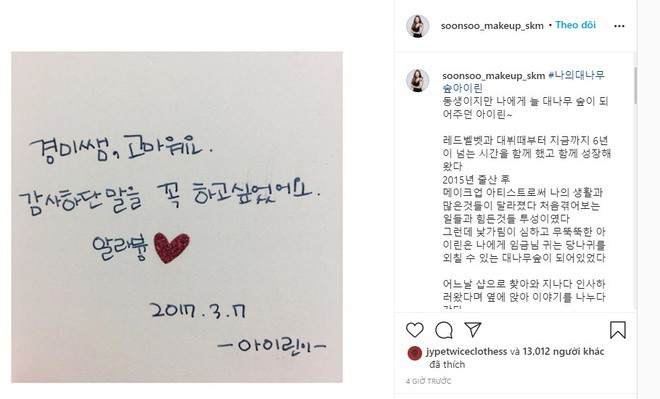 경미쌤, 고마워요.
감사하단 말을 꼭 하고싶었어요.
알라븅
2017.3.7
-아이린이-
soonsoo_makeup_skm • Theo dõi
soonsoo_makeup_skm #나의대나무
숲아이린
동생이지만 나에게 늘 대나무 숲이 되
어주던 아이린~
레드벨벳과 대뷔때부터 지금까지 6년
이 넘는 시간을 함께 했고 함께 성장해
왔다
2015년 출산 후
메이크업 아티스트로써 나의 생활과
많은것들이 달라졌다 처음겪어보는
일들과 힘든것들 투성이였다
그런데 낯가림이 심하고 무뚝뚝한 아
이린은 나에게 임금님 귀는 당나귀를
외칠 수 있는 대나무숲이 되어있었다
어느날 샵으로 찾아와 지나다 인사하
러왔다며 옆에 앉아 이야기를 나누다
jypetwiceclothess và 13,012 người khác
đã thích
4 GIỜ TRƯỚC